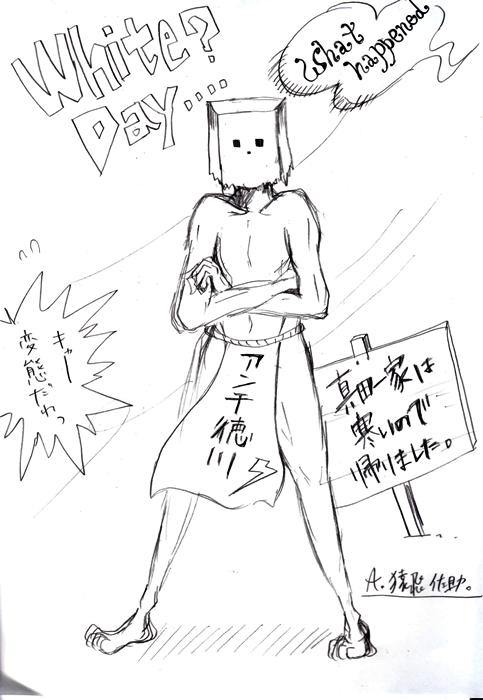 White?
Day....
What
happened
キャー
変態だわっ
アンチ徳川
真田一家は
寒いので
帰りました。
A.猿飛佐助。